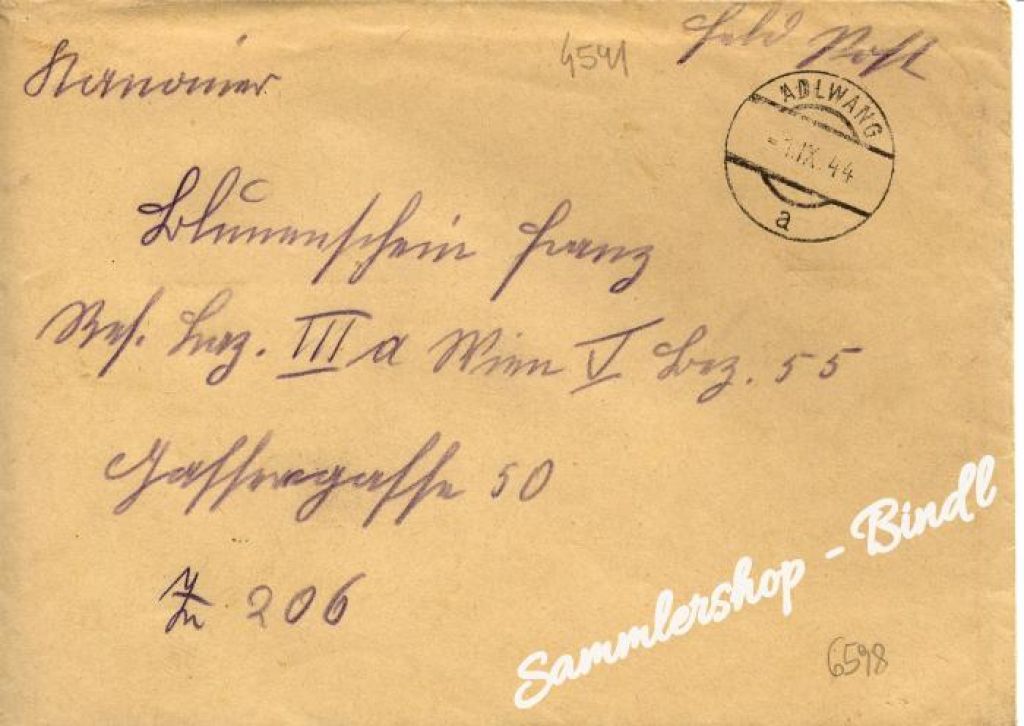 Feld Post
4541
Kanonier
ADLWANG
-1.IX.44
a
Blumenschein Franz
Res. Laz. III a Wien V Bez. 55
Gassergasse 50
206
Sammlershop - Bindl
6598